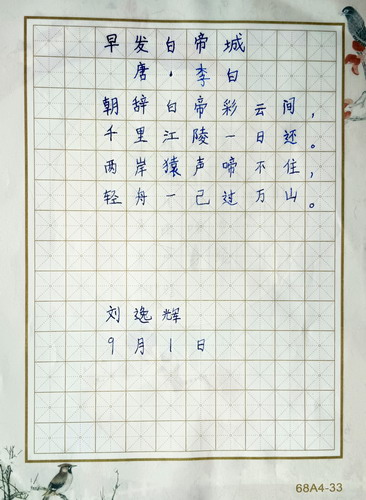 早发白帝城
唐·李白
朝辞白帝彩云间，
千里江陵一日还。
两岸猿声啼不住，
轻舟一已过万山。
刘逸辉
9月1日
68A4-33